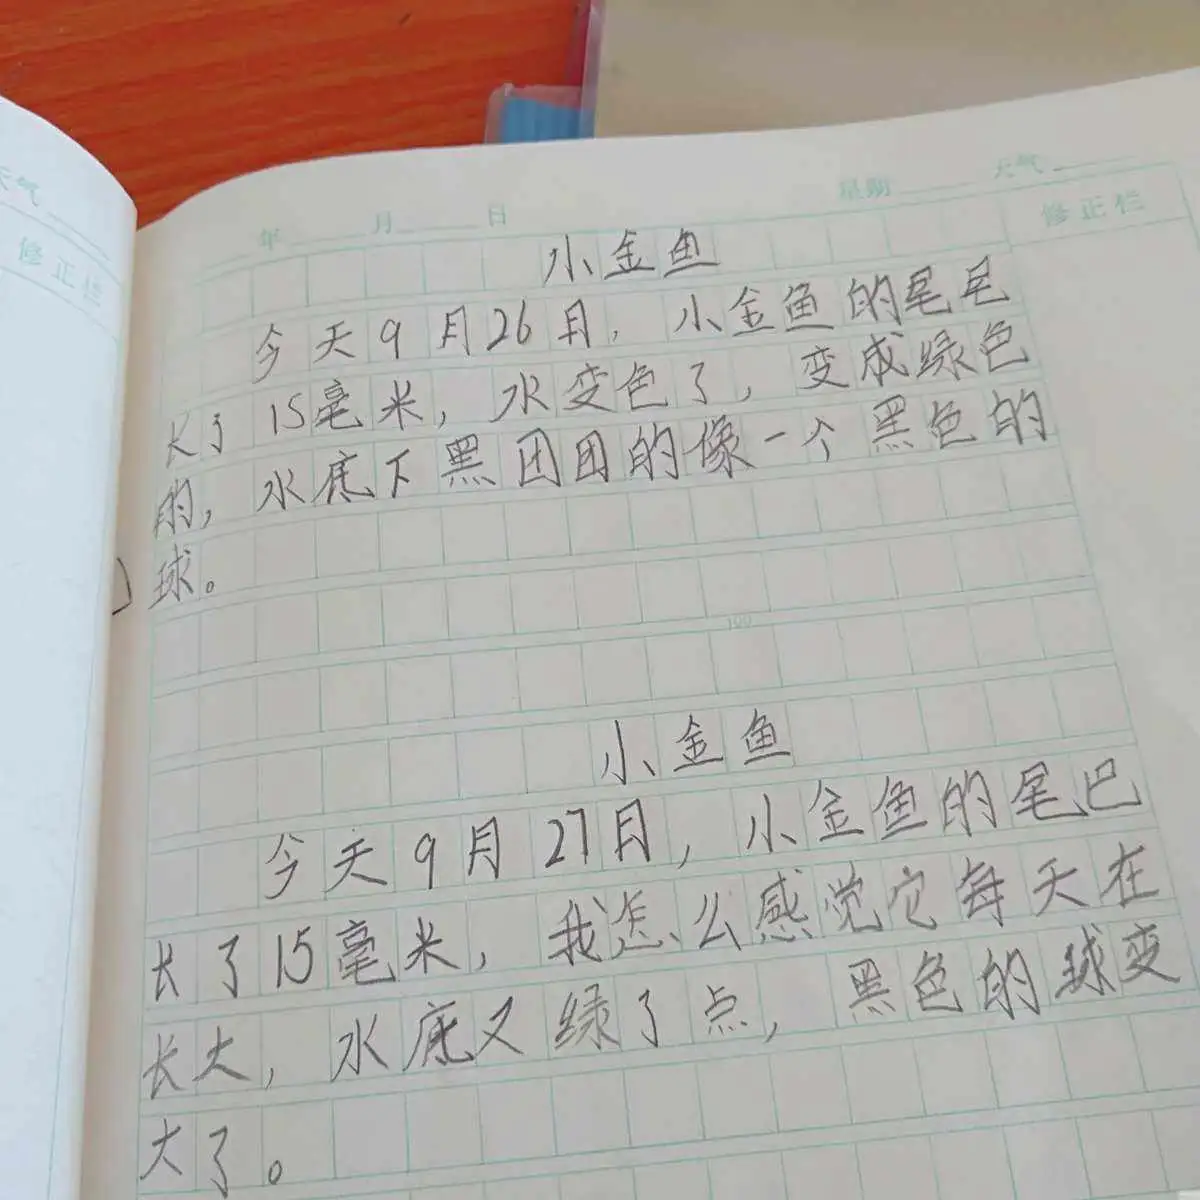 天气
修正栏
年 月 日 星期 天气
修正栏
小金鱼
今天9月26日，小金鱼的尾尾
长了15毫米，水变色了，变成绿色
的，水底下黑团团的像一个黑色的
球。
100
小金鱼
今天9月27日，小金鱼的尾巴
长了15毫米，我怎么感觉它每天在
长大，水底又绿了点，黑色的球变
大了。